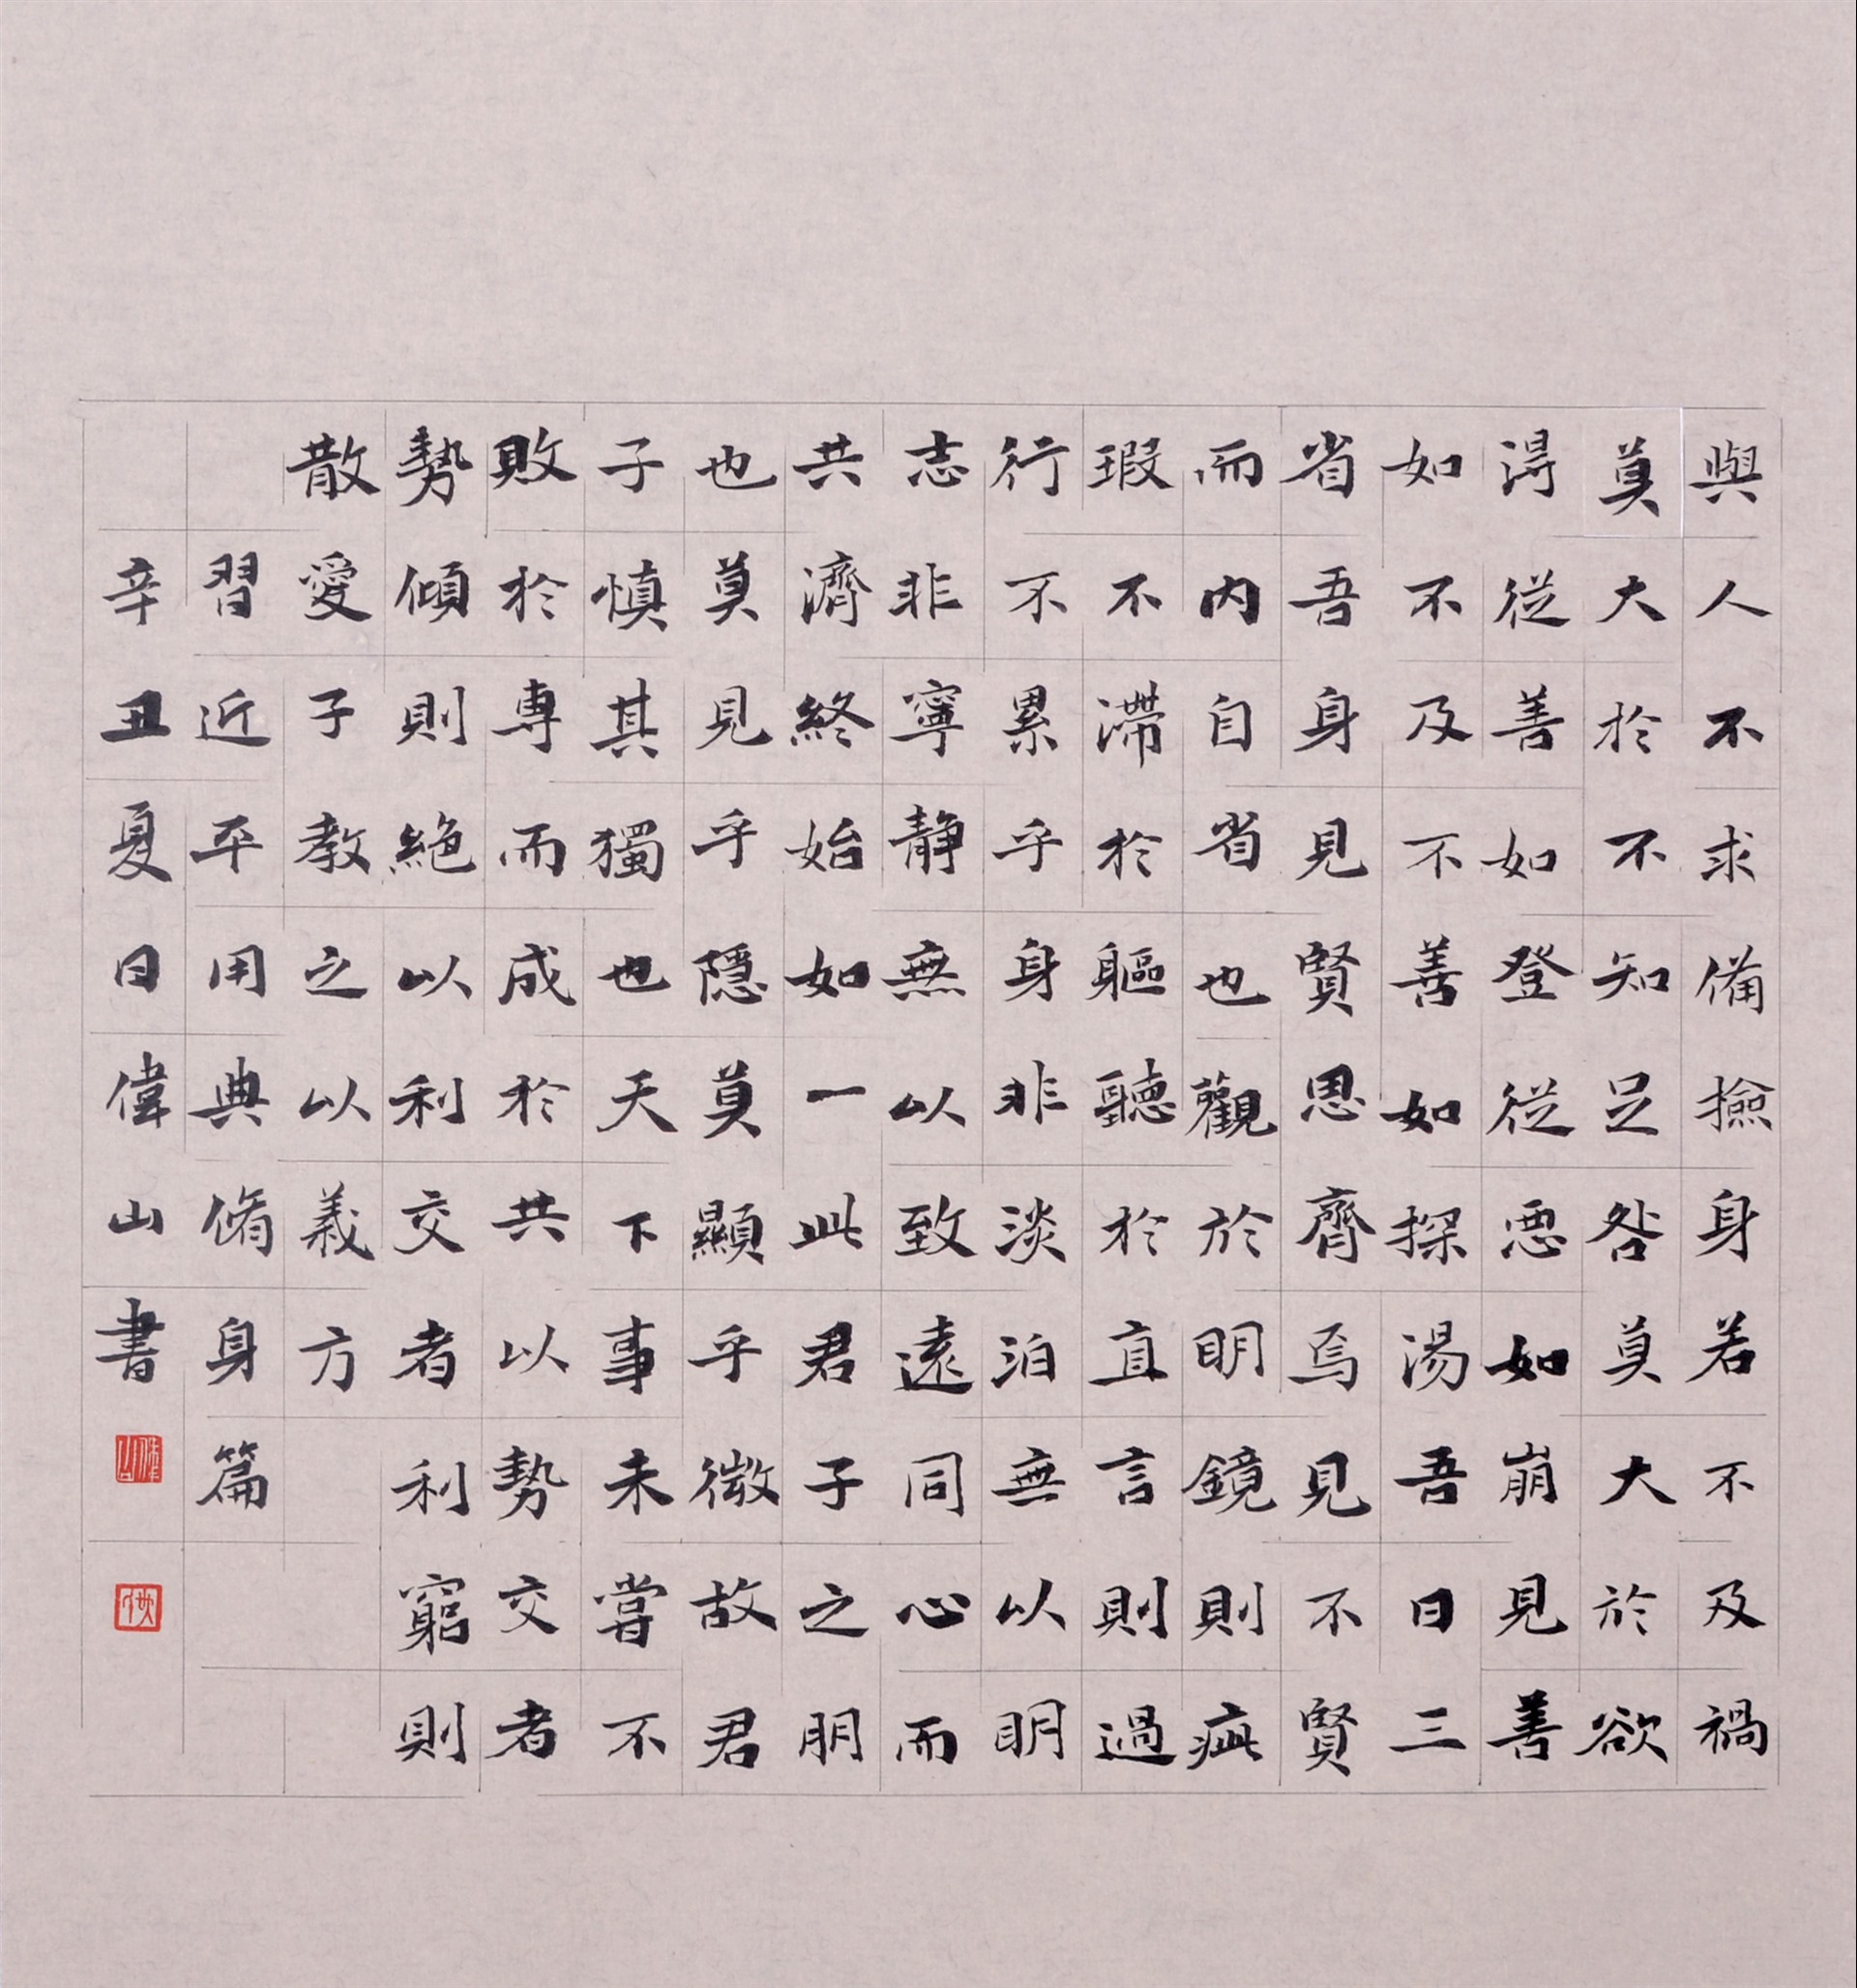 與人不求備撿身若不及禍
莫大於不知足咎莫大於欲
淂從善如登從惡如崩見善
如不及不善如探湯吾日三
省吾身見賢思齊焉見不賢
而内自省也觀於明鏡則疵
瑕不滯於軀聽於直言則過
行不累乎身非淡泊無以明
志非寧静無以致遠同心而
共濟終始如一此君子之朋
也莫見乎隱莫顯乎微故君
子慎其獨也天下事未嘗不
敗於專而成於共以勢交者
勢傾則絕以利交者利窮則
散愛子教之以義方
習近平用典脩身篇
辛丑夏日偉山書